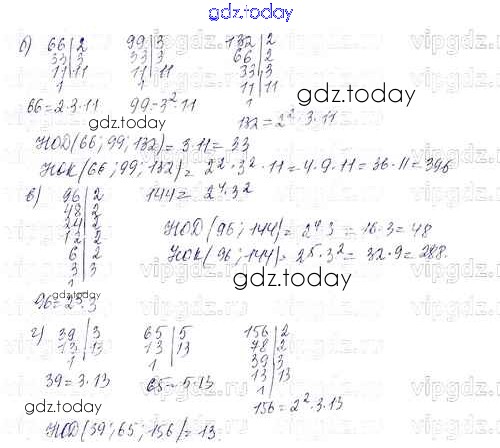 gdz.today
б) 66|2 99|3 132|2
33|3 33|3 66|2
11|11 11|11 33|3
1 1 11|11
1
66=2·3·11 99=3²·11 132=2²·3·11
gdz.today
gdz.today
НОД(66; 99; 132)=3·11=33
НОК(66; 99; 132)=2²·3²·11=4·9·11=36·11=396
в) 96|2 144=2⁴·3²
48|2
24|2
12|2
6|2
3|3
1
НОД(96; 144)=2⁴·3=16·3=48
НОК(96; 144)=2⁵·3²=32·9=288.
gdz.today
gdz.today
96=2⁵·3
г) 39|3 65|5 156|2
13|13 13|13 78|2
1 1 39|3
13|13
1
39=3·13 65=5·13 156=2²·3·13
gdz.today
НОД(39; 65; 156)=13
gdz.today